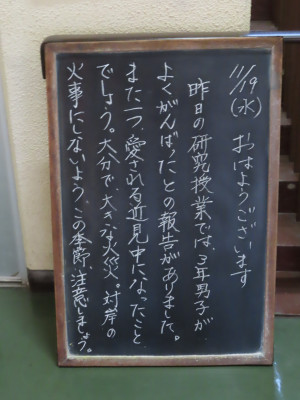 11/19(水) おはようございます
昨日の研究授業では、3年男子が
よくがんばったとの報告がありました。
また一つ、愛される近見中になったこと
でしょう。大分で、大きな火災。対岸の
火事にしないよう、この季節、注意しましょう。